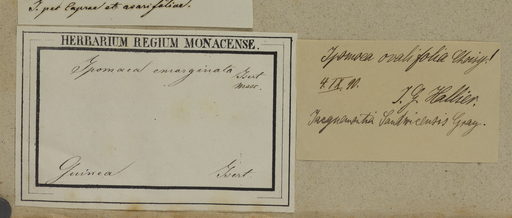 I. pes Caprae et asarifoliae.
HERBARIUM REGIUM MONACENSE.
Ipomaea emarginata Isert
msc.
Guinea Isert
Ipomoea ovalifolia Choisy!
4. IX. 90.
J. G. Hallier.
Jacquemontia Sandwicensis Gray.